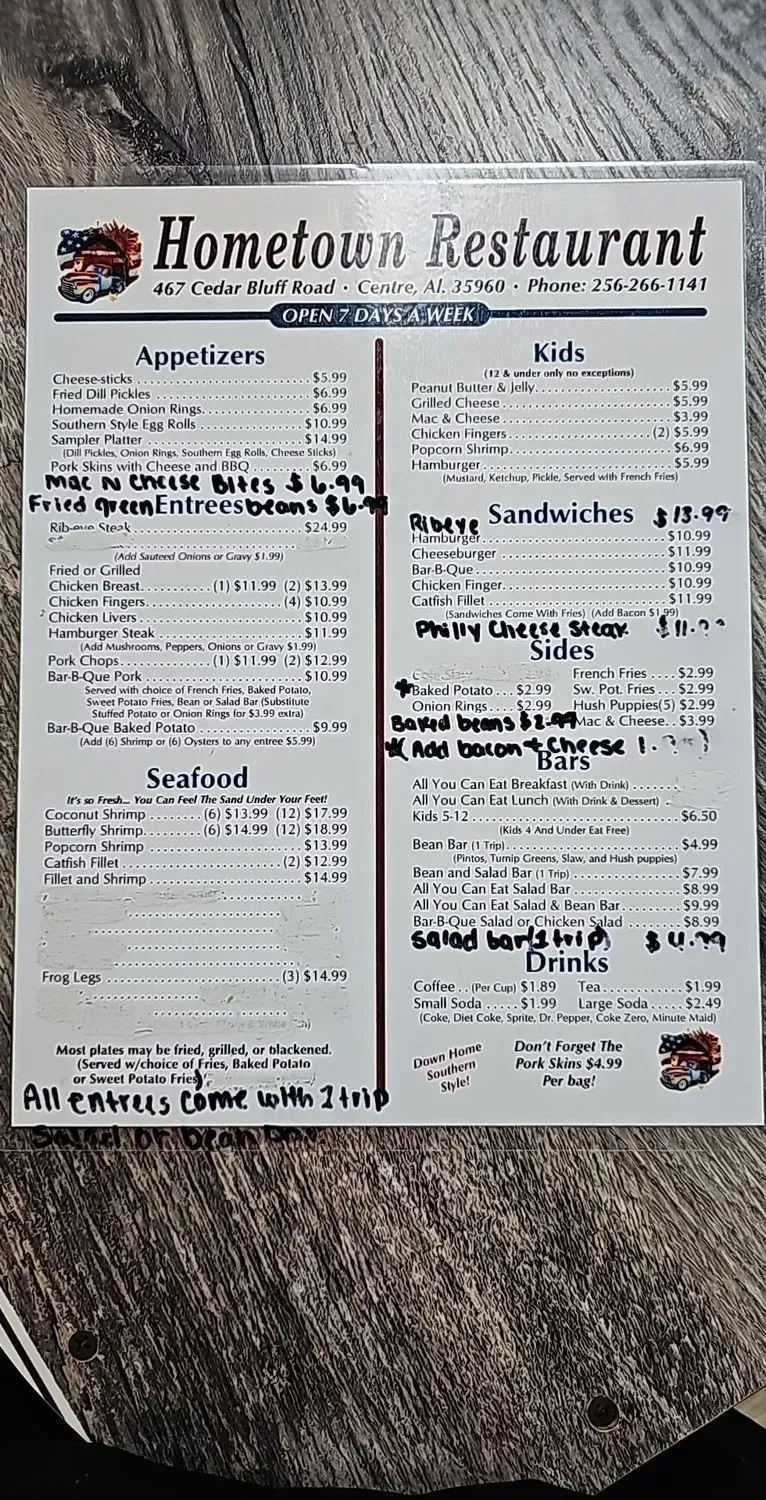 Hometown Restaurant
467 Cedar Bluff Road • Centre, Al. 35960 • Phone: 256-266-1141
OPEN 7 DAYS A WEEK
Appetizers
Cheese-sticks $5.99
Fried Dill Pickles $6.99
Homemade Onion Rings $6.99
Southern Style Egg Rolls $10.99
Sampler Platter $14.99
(Dill Pickles, Onion Rings, Southern Egg Rolls, Cheese Sticks)
Pork Skins with Cheese and BBQ $6.99
Mac N Cheese Bites $6.99
Fried green beans $6.99
Entrees
Rib-eye Steak $24.99
(Add Sauteed Onions or Gravy $1.99)
Fried or Grilled
Chicken Breast (1) $11.99 (2) $13.99
Chicken Fingers (4) $10.99
Chicken Livers $10.99
Hamburger Steak $11.99
(Add Mushrooms, Peppers, Onions or Gravy $1.99)
Pork Chops (1) $11.99 (2) $12.99
Bar-B-Que Pork $10.99
Served with choice of French Fries, Baked Potato,
Sweet Potato Fries, Bean or Salad Bar (Substitute
Stuffed Potato or Onion Rings for $3.99 extra)
Bar-B-Que Baked Potato $9.99
(Add (6) Shrimp or (6) Oysters to any entree $5.99)
Seafood
It's so Fresh... You Can Feel The Sand Under Your Feet!
Coconut Shrimp (6) $13.99 (12) $17.99
Butterfly Shrimp (6) $14.99 (12) $18.99
Popcorn Shrimp $13.99
Catfish Fillet (2) $12.99
Fillet and Shrimp $14.99
Frog Legs (3) $14.99
Most plates may be fried, grilled, or blackened.
(Served w/choice of Fries, Baked Potato
or Sweet Potato Fries)
All entrees come with 1 trip
Salad or bean bar
Kids
(12 & under only no exceptions)
Peanut Butter & Jelly $5.99
Grilled Cheese $5.99
Mac & Cheese $3.99
Chicken Fingers (2) $5.99
Popcorn Shrimp $6.99
Hamburger $5.99
(Mustard, Ketchup, Pickle, Served with French Fries)
Sandwiches
Ribeye $13.99
Hamburger $10.99
Cheeseburger $11.99
Bar-B-Que $10.99
Chicken Finger $10.99
Catfish Fillet $11.99
(Sandwiches Come With Fries) (Add Bacon $1.99)
Philly Cheese Steak
Sides
French Fries $2.99
*Baked Potato $2.99 Sw. Pot. Fries $2.99
Onion Rings $2.99 Hush Puppies(5) $2.99
Baked beans $2.99 Mac & Cheese $3.99
*(Add bacon + Cheese
Bars
All You Can Eat Breakfast (With Drink)
All You Can Eat Lunch (With Drink & Dessert)
Kids 5-12 $6.50
(Kids 4 And Under Eat Free)
Bean Bar (1 Trip) $4.99
(Pintos, Turnip Greens, Slaw, and Hush puppies)
Bean and Salad Bar (1 Trip) $7.99
All You Can Eat Salad Bar $8.99
All You Can Eat Salad & Bean Bar $9.99
Bar-B-Que Salad or Chicken Salad $8.99
Salad bar(1 trip) $4.99
Drinks
Coffee (Per Cup) $1.89 Tea $1.99
Small Soda $1.99 Large Soda $2.49
(Coke, Diet Coke, Sprite, Dr. Pepper, Coke Zero, Minute Maid)
Down Home
Southern
Style!
Don't Forget The
Pork Skins $4.99
Per bag!